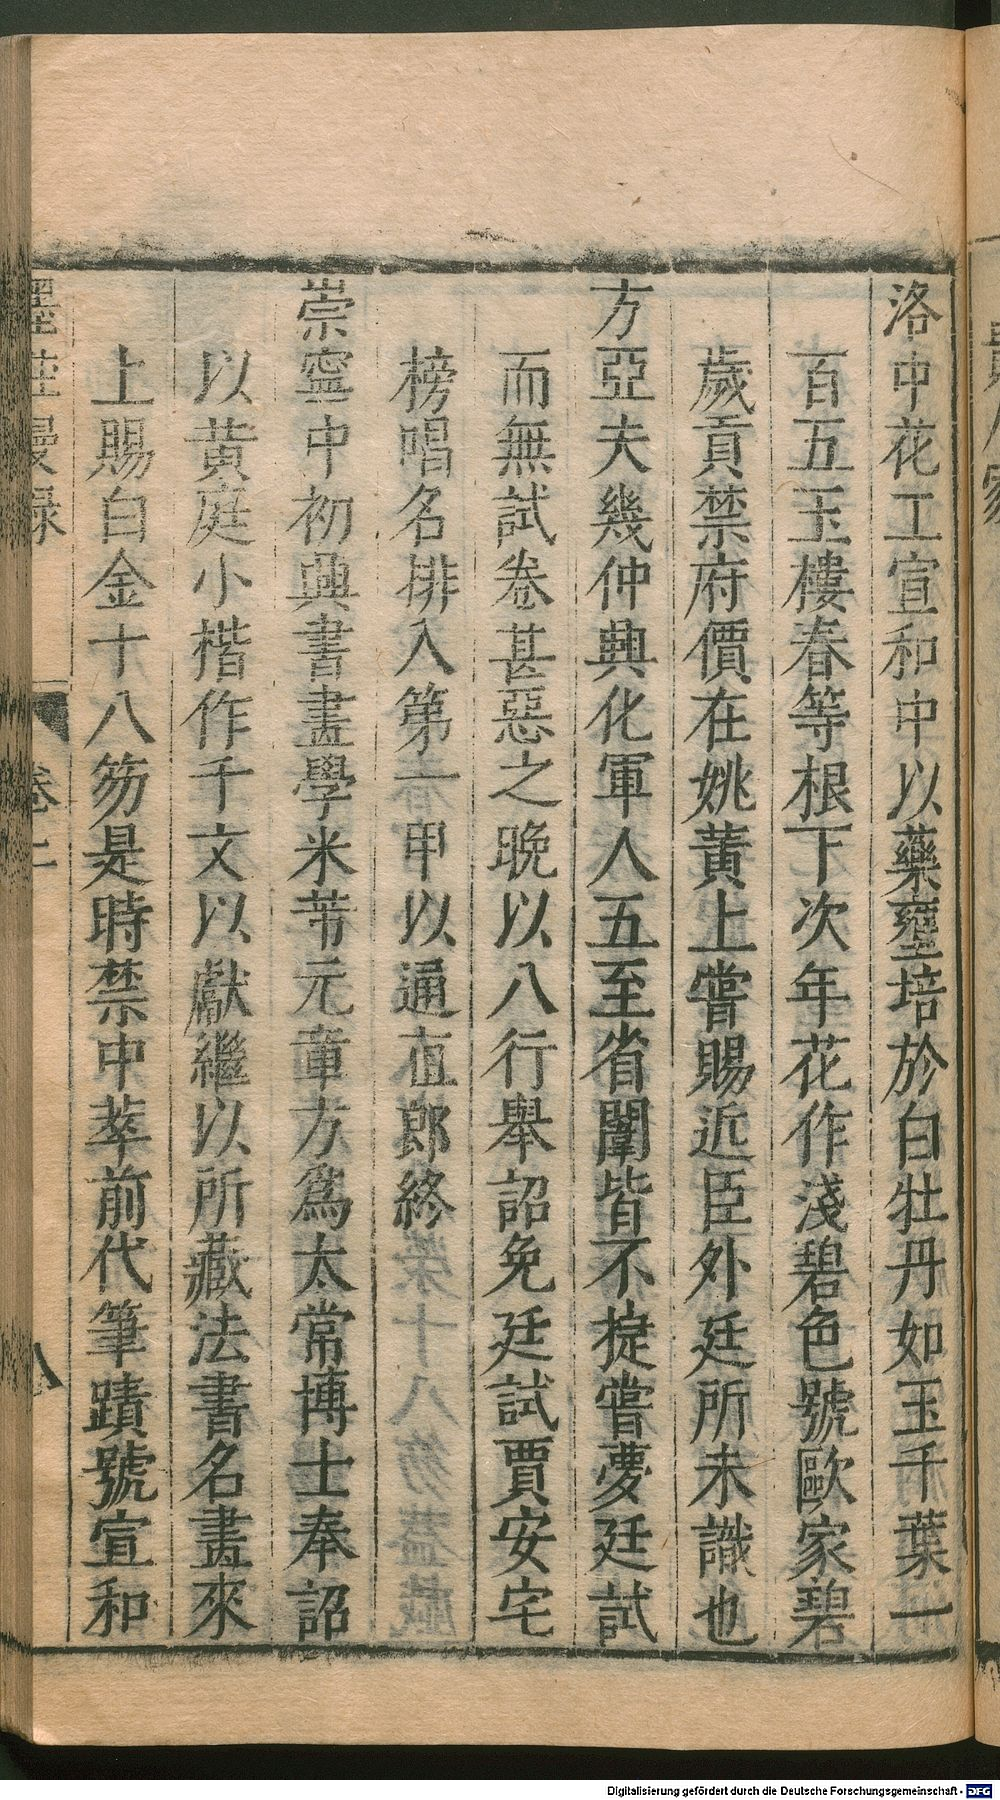 洛中花工宣和中以藥壅培於白牡丹如玉千葉一
百五玉樓春等根下次年花作淺碧色號歐家碧
歲貢禁府價在姚黃上嘗賜近臣外廷所未識也
方亞夫幾仲興化軍人五至省闈皆不掟嘗夢廷試
而無試卷甚惡之晚以八行舉詔免廷試賈安宅
榜唱名排入第一甲以通直郎終
崇寧中初興書畫學米芾元章方爲太常博士奉詔
以黃庭小楷作千文以獻繼以所藏法書名畫來
上賜白金十八笏是時禁中萃前代筆蹟號宣和
墨莊漫錄
卷二
八
Digitalisierung gefördert durch die Deutsche Forschungsgemeinschaft - DFG